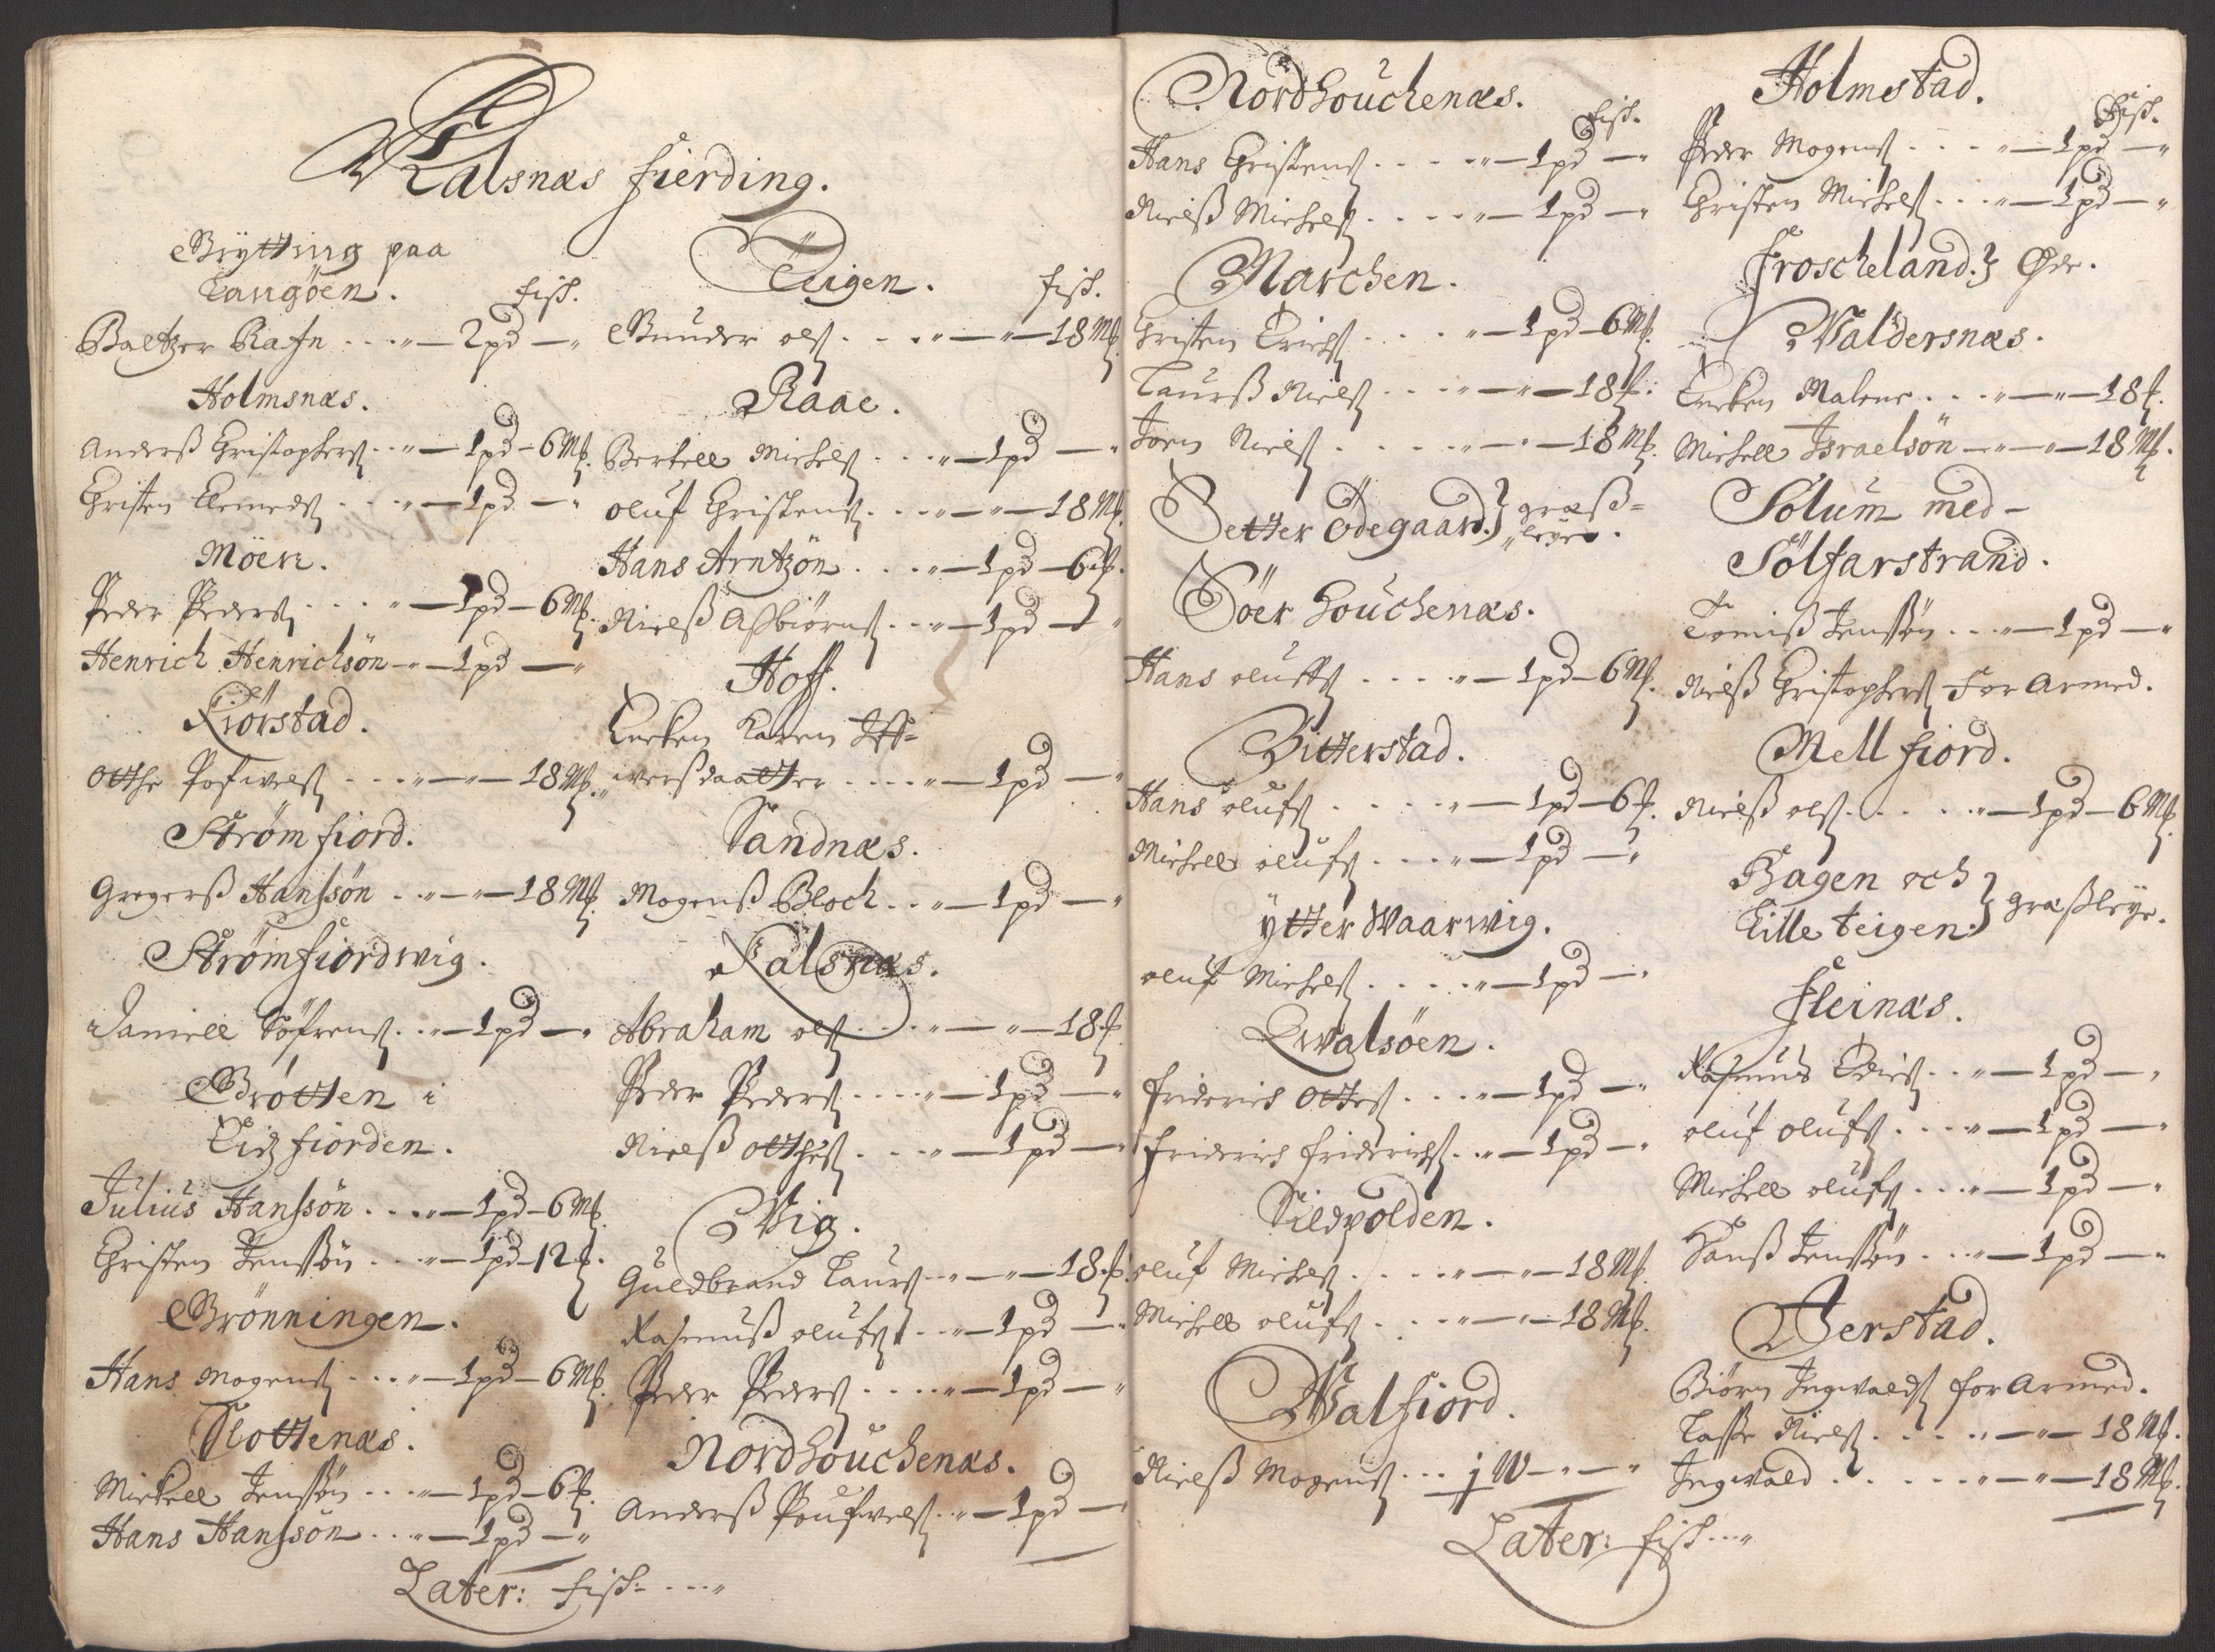 Kalsnæs fierding.
Grytting paa
Langöen.
fisk.
Baltzer Rafn . . . „ — 2 pd — „
Holmsnæs.
Anderß Christophers . . „ — 1 pd – 6 Mk.
Christen Clemeds . . . „ — 1 pd — „
Möen.
Peder Peders . . . . „ — 1 pd – 6 Mk.
Henrich Henrichsön — „ — 1 pd — „
Kiörstad.
Otthe Pofwels . . . „ — „ — 18 Mk.
Strømfiord.
Gregerß Hanssön . . „ — „ — 18 Mk.
Strømfiordwig.
Daniell Söfrens . . „ — 1 pd — „
Grötten i
Eidzfiorden.
Julius Hanssön . . . „ — 1 pd – 6 Mk.
Christen Jenssön . . . „ — 1 pd – 12 k.
Grönningen.
Hans Mogens . . . „ — 1 pd – 6 Mk.
Slottenæs.
Mickell Jenssön . . . „ — 1 pd – 6 k.
Hans Hanssön . . . „ — 1 pd — „
Teigen.
fisk.
Gunder ols . . . „ — „ — 18 Mk.
Raae.
Bertell Michels . . . „ — 1 pd — „
oluf Christens . . . „ — „ — 18 Mk.
Hans Arntzön . . . „ — 1 pd – 6 k.
Nielß Assbiörns . . . „ — 1 pd — „
Hoff.
Encken Karen Iff=
„werssdaatter . . . . „ — 1 pd — „
Sandnæs.
Mogenß Bloch . . „ — 1 pd — „
Kalsnæs.
Abraham ols . . . „ — „ — 18 k.
Peder Peders . . . . „ — 1 pd — „
Nielß otthes . . . „ — 1 pd — „
Wig.
Guldbrand Laurs . . „ — „ — 18 k.
Rasmuß olufs . . „ — 1 pd — „
Peder Peders . . . . „ — 1 pd — „
Nordhouchenæs.
Anderß Poufwels . . „ — 1 pd — „
Later: fisk . . . „
Nordhouchenæs.
fisk.
Hans Christens . . . . „ — 1 pd — „
Nielß Michels . . . . „ — 1 pd — „
Marchen.
Christen Erichs . . . „ — 1 pd – 6 Mk.
Laurß Niels . . . „ — „ — 18 k.
Jörn Niels . . . . . „ — „ — 18 Mk.
Setter Ödegaard. } græß=
„leye .
Söer houchenæs.
Hans oluffs . . . . „ — 1 pd – 6 Mk.
Bitterstad.
Hans olufs . . . . „ — 1 pd – 6 k.
Michell olufs . . . „ — 1 pd — „
ytter Waarwig.
oluf Michels . . . . „ — 1 pd — „
Qwalsöen.
friderich Ottes . . . „ — 1 pd — „
friderich friderichs . . „ — 1 pd — „
Sildpolden.
oluf Michels . . . . „ — „ — 18 Mk.
Michell olufs . . . „ — „ — 18 Mk.
Walfiord.
Nielß Mogens . . . j W — „ — „
Holmstad.
fisk.
Peder Mogens . . . . „ — 1 pd — „
Christen Michels . . . „ — 1 pd — „
froscheland. } Öde.
Waldersnæs.
Encken Malene . . . „ — „ — 18 k.
Michell Israelsön — „ — „ — 18 Mk.
Solum med –
Sölfarstrand.
Tomiß Jenssön . . . „ — 1 pd — „
Nielß Christophers for Armed.
Mellfiord.
Nielß ols . . . . . „ — 1 pd – 6 Mk.
Hagen och
Lille teigen. } græßleye.
fleinæs.
Rasmus Edis . . . „ — 1 pd — „
oluf olufs . . . . „ — 1 pd — „
Michell olufs . . . „ — 1 pd — „
Hanß Jenssön . . . „ — 1 pd — „
Jerstad.
Biörn Ingwalds for Armed.
Lasse Niels . . . . . „ — „ — 18 Mk.
Ingwald . . . . . . „ — „ — 18 Mk.
Later: fisk . . . „